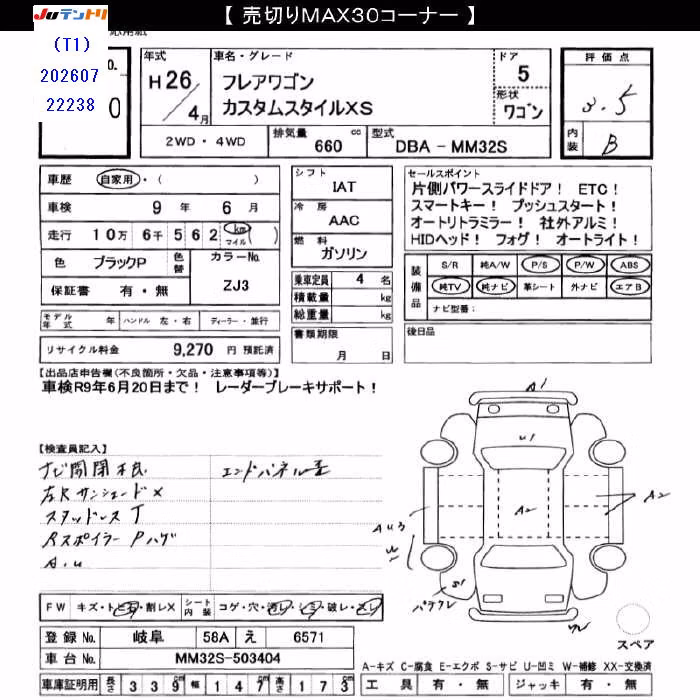 JUテントリ
【 売切りMAX30コーナー 】
(T1)
202607
22238
No.
0
年式
H26/4月
車名・グレード
フレアワゴン
カスタムスタイルXS
ドア
5
形状
ワゴン
評価点
3.5
内装
B
2WD・4WD
排気量 660 cc
型式 DBA - MM32S
車歴 自家用・( )
車検 9年 6月
走行 10万 6千 5 6 2 km マイル ( )
色 ブラックP
色替
カラーNo.
ZJ3
保証書 有・無
シフト
IAT
冷房
AAC
燃料
ガソリン
乗車定員 4 名
積載量 kg
総重量 kg
セールスポイント
片側パワースライドドア! ETC!
スマートキー! プッシュスタート!
オートリトラミラー! 社外アルミ!
HIDヘッド! フォグ! オートライト!
装備品
S/R 純A/W P/S P/W ABS
純TV 純ナビ 革シート 外ナビ エアB
ナビ型番:
モデル年式 年 ハンドル 左・右 ディーラー・並行
書類期限
月 日
後日品
リサイクル料金 9,270 円 預託済
【出品店申告欄(不良箇所・欠品・注意事項等)】
車検R9年6月20日まで! レーダーブレーキサポート!
【検査員記入】
ナビ開閉不良 エンドパネル歪
左Rサンシェード×
スタッドレスT
Rスポイラー Pハゲ
A.u
A1
U1
A2
A2
AU3
W
S1
パテワレ
FW キズ・トビ石・割レX
シート内装 コゲ・穴・汚レ・シミ・破レ・スレ
登録No. 岐阜 58A え 6571
車台No. MM32S-503404
スペア
A-キズ C-腐食 E-エクボ S-サビ U-凹ミ W-補修 XX-交換済
車庫証明用 長さ 339cm 幅 147cm 高さ 173cm
工具 有・無 ジャッキ 有・無